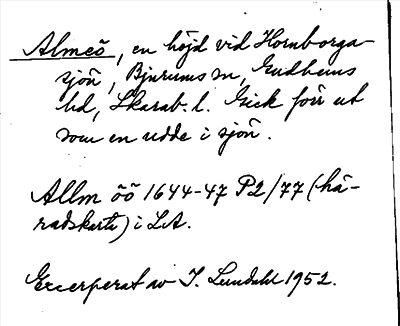 Almeö, en höjd vid Hornborga-
sjön, Bjurums sn, Gudhems
hd, Skarab. l. Gick förr ut
som en udde i sjön.
Allm öö 1644-47 P2/77 (hä-
radskarta) i LA.
Excerperat av I. Lundahl 1952.